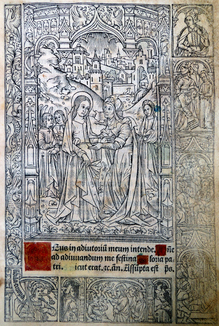 Eus in adiutoriũ meum intende. Dñe
ad adiuuandum me festina. Gloria pa
tri. Sicut erat. &c. añ. Assũpta est